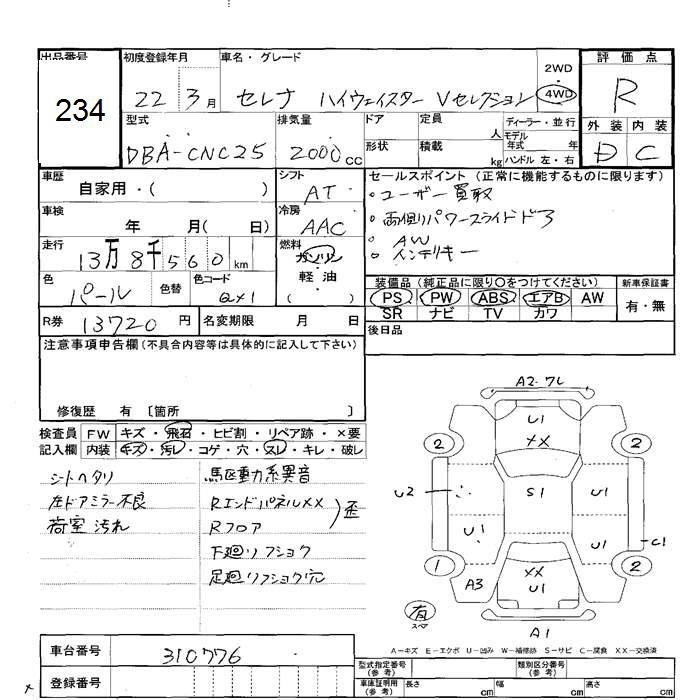 出品番号 初度登録年月 車名・グレード 2WD ・ 4WD 評価点
234 22 3月 セレナ ハイウェイスター Vセレクション R
型式 排気量 ドア 定員 人 ディーラー・並行 外装 内装
DBA-CNC25 2000cc 形状 積載 kg モデル年式 年 ハンドル 左・右 D C
車歴 シフト セールスポイント (正常に機能するものに限ります)
自家用・( ) AT ・ユーザー買取
車検 冷房 ・両側パワースライドドア
年 月( 日) AAC ・AW
走行 燃料 ・インテリキー
13万8千560km ガソリン
色 色替 色コード 軽・油 装備品 (純正品に限り○をつけてください) 新車保証書
パール QX1 ( ) PS PW ABS エアB AW 有・無
SR ナビ TV カワ
R券 13720円 名変期限 月 日 後日品
注意事項申告欄(不具合内容等は具体的に記入して下さい)
修復歴 有 〔箇所 〕
検査員 FW キズ・飛石・ヒビ割・リペア跡・×要
記入欄 内装 キズ・汚レ・コゲ・穴・スレ・キレ・破レ
シートヘタリ 駆動系異音
左ドアミラー不良 RエンドパネルXX
荷室汚れ Rフロア 歪
下廻りフショク
足廻りフショク穴
A2・ワレ
U1
XX
2 2
U2 S1 U1
U1 U1 C1
1 2
A3 XX
U1
有
スペア
A1
A-キズ E-エクボ U-凹み W-補修跡 S-サビ C-腐食 XX-交換済
車台番号 310776
登録番号
型式指定番号(参考) 類別区分番号(参考)
車庫証明用(参考) 長さ cm 幅 cm 高さ cm